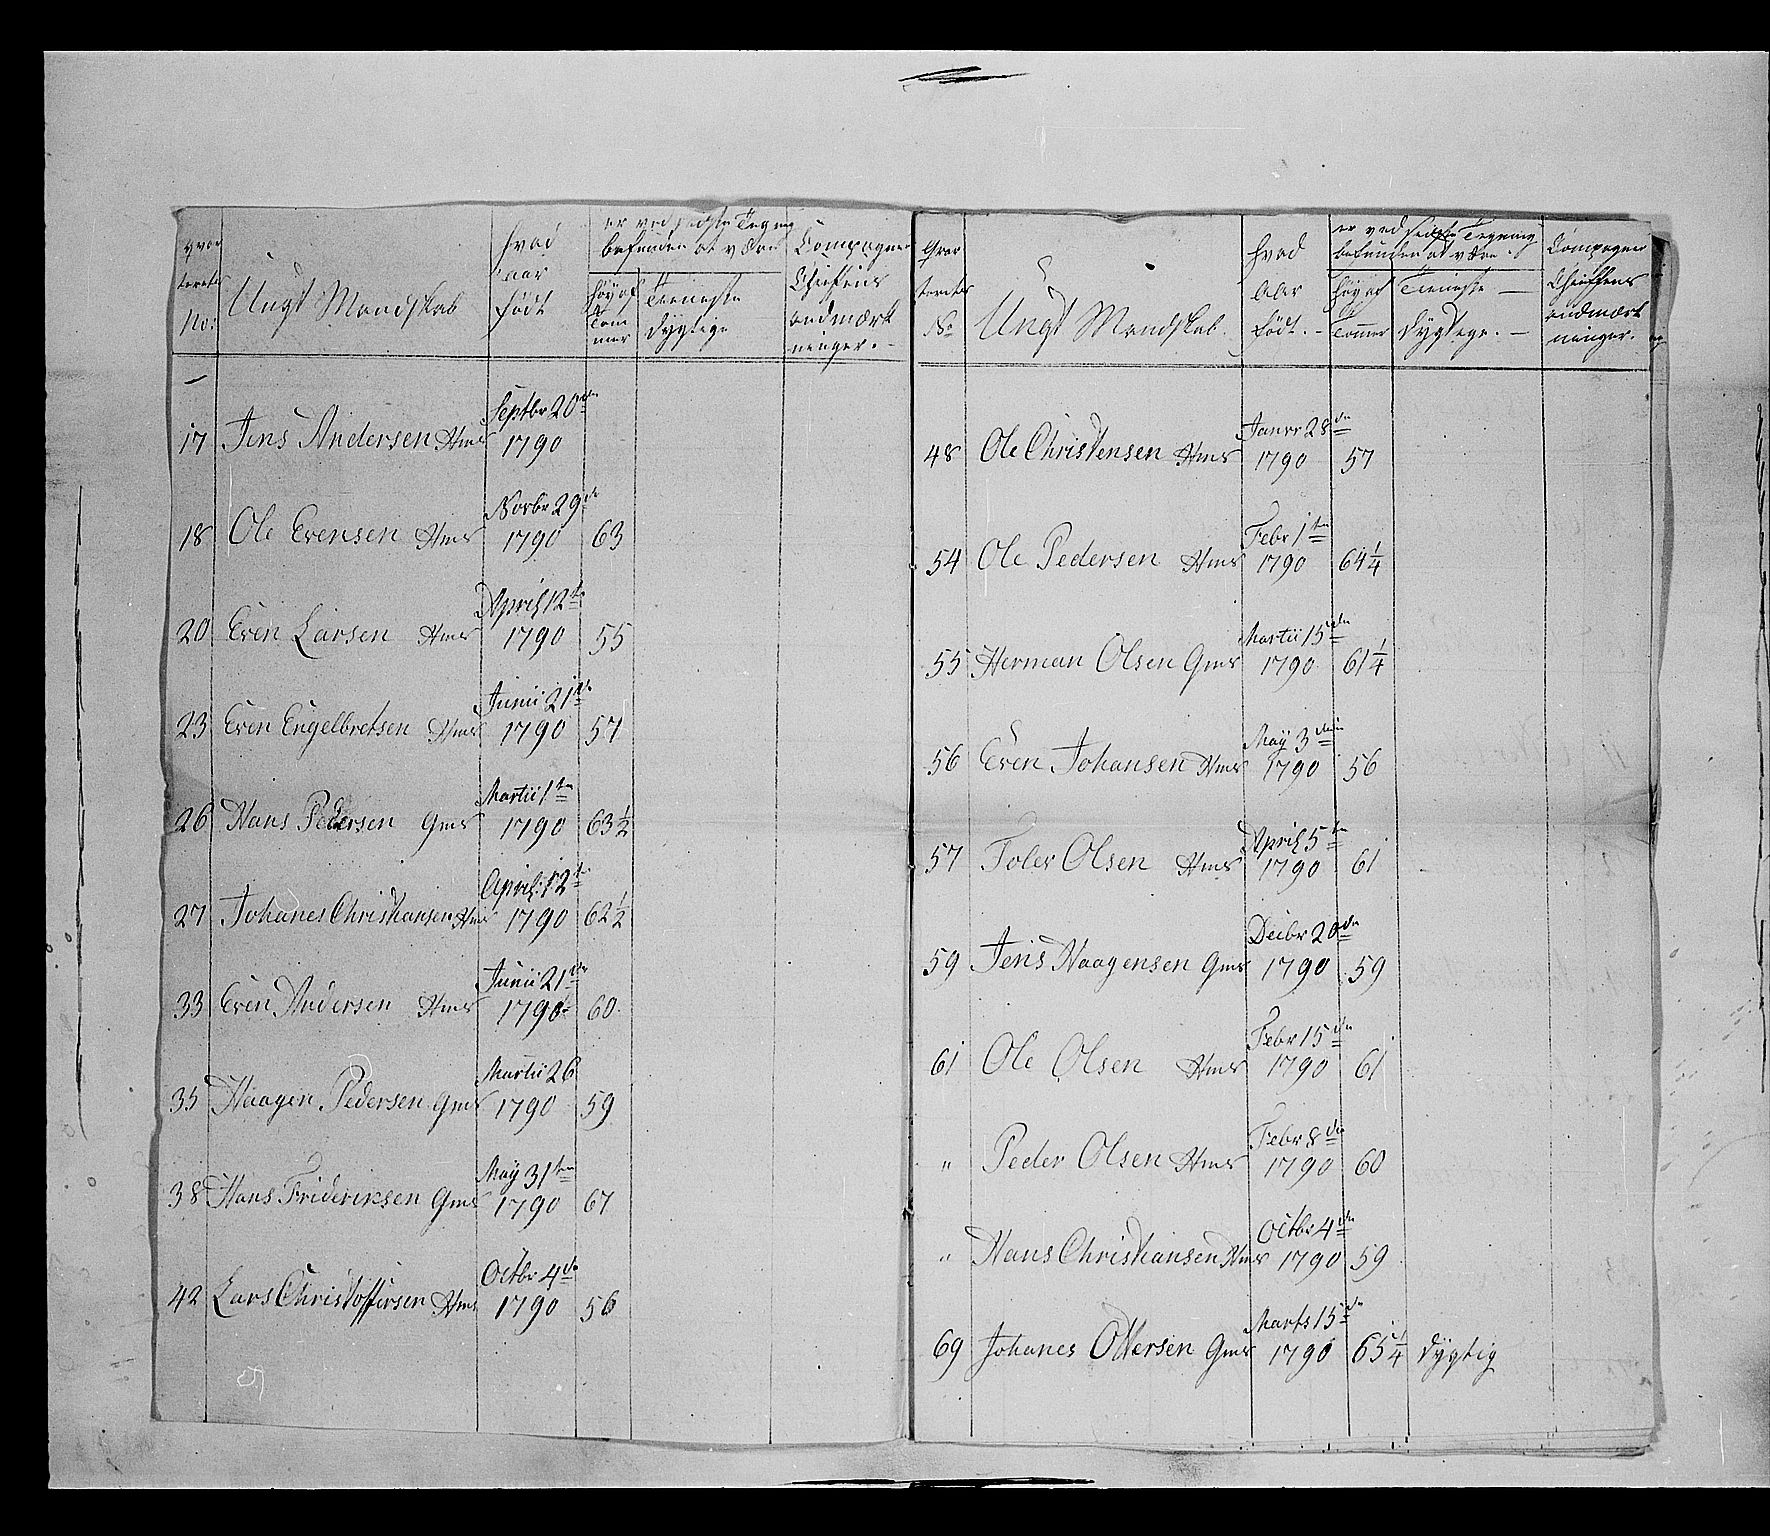 Qvar
terets
No:
Ungt Mandskab
hvad
aar
født
er ved sidste Tegning
befunden at være
høy af
Tom
mer
Tieneste
dygtige
Compagnie
Chefens
andmærk
ninger.
17 Jens Andersen Hms Septbr 20de 1790
18 Ole Evensen Hms Novbr 29de 1790 63
20 Even Larsen Hms April 12te 1790 55
23 Even Engelbretsen Hms Junii 21de 1790 57
26 Hans Pedersen Gms Martii 1ten 1790 63 1/2
27 Johanes Christiansen Hms April: 12te 1790 62 1/2
33 Even Andersen Hms Junii 21de 1790 60
35 Haagen Pedersen Gms Martii 26 1790 59
38 Hans Frideriksen Gms May 31ten 1790 67
42 Lars Christoffersen Hms Octbr 4de 1790 56
Qvar
terets
No
Ungt Mandskab.
hvad
Aar
født.
er ved sidste Tegning
befunden at være
høy af
Tommer
Tieneste
dygtige.
Compagnie
Cheffens
andmærk
ninger.
48 Ole Christensen Hms Janvr 28de 1790 57
54 Ole Pedersen Hms Febr 1ten 1790 64 1/4
55 Herman Olsen Gms Martii 15den 1790 61 1/4
56 Even Johansen Hms May 3die 1790 56
57 Tolev Olsen Hms April 5ten 1790 61
59 Jens Haagensen Gms Decbr 20de 1790 59
61 Ole Olsen Hms Febr 15de 1790 61
" Peder Olsen Hms Febr 8de 1790 60
" Hans Christiansen Hms Octbr 4de 1790 59
69 Johanes Ottersen Gms Marts 15de 1790 65 1/4 dygtig